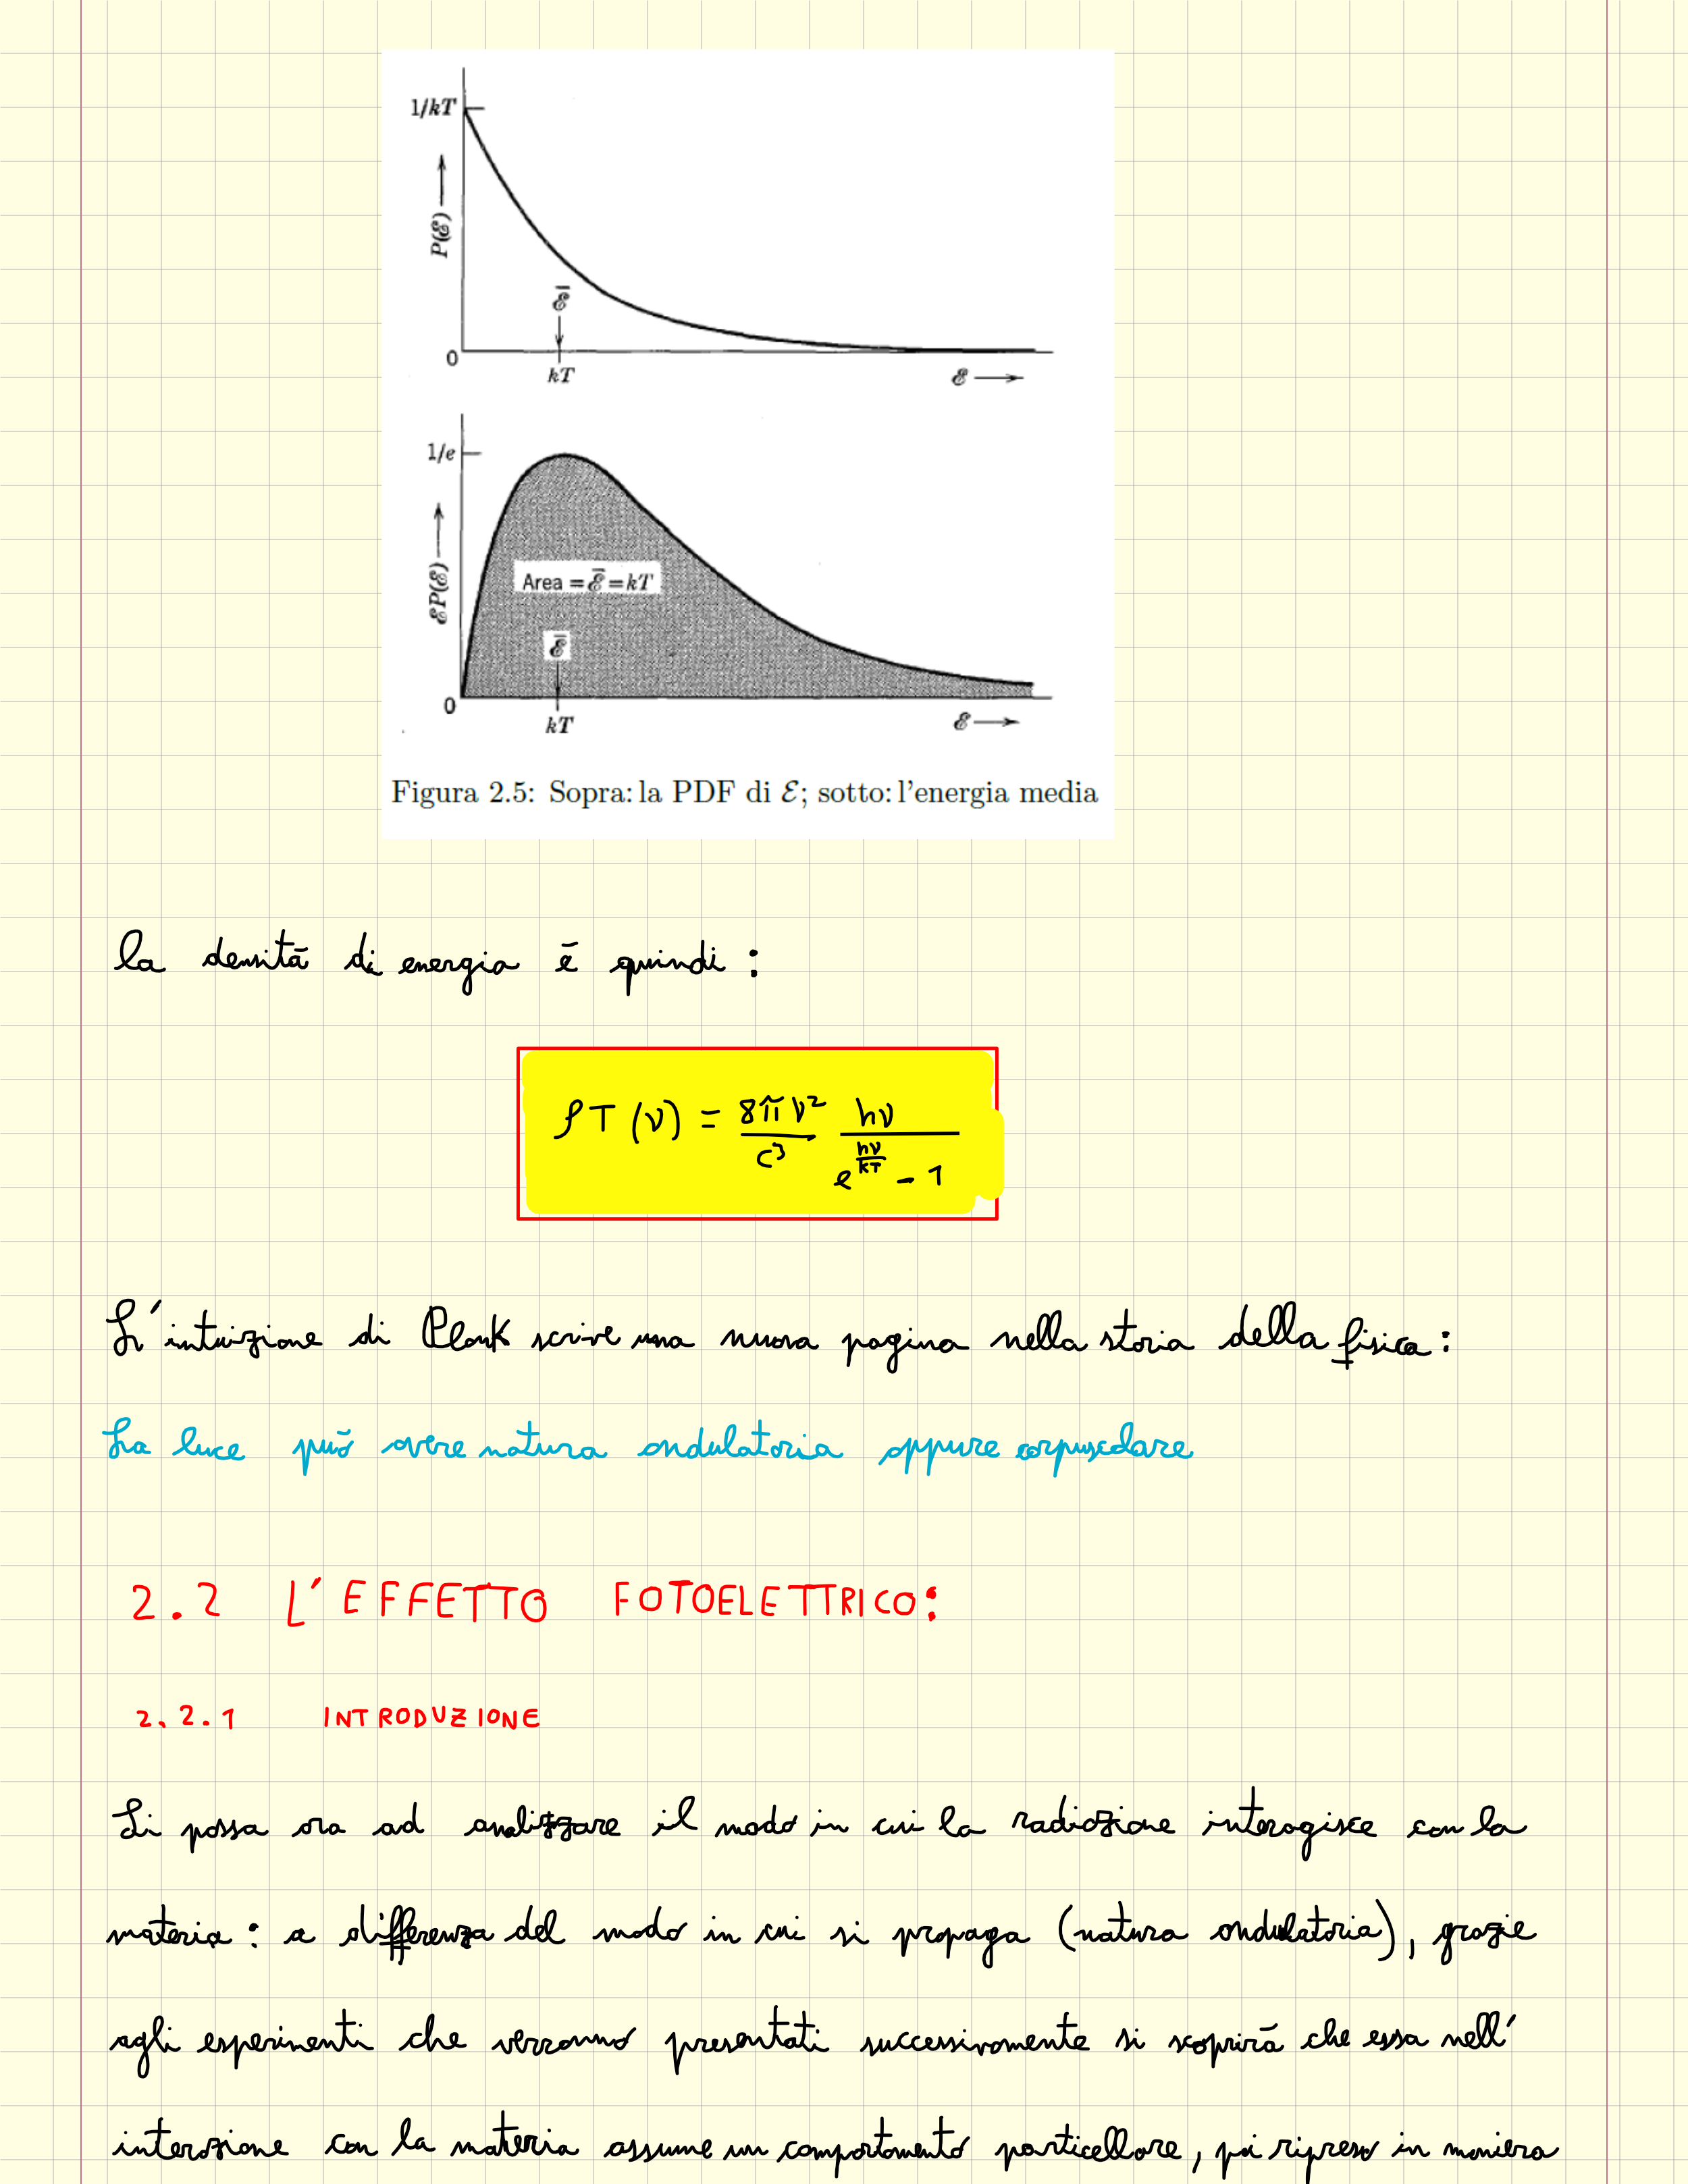 1/kT
P(ℰ) →
ℰ̄
0
kT
ℰ →
1/e
ℰP(ℰ) →
Area = ℰ̄ = kT
ℰ̄
0
kT
ℰ →
Figura 2.5: Sopra: la PDF di ℰ; sotto: l'energia media
la densitā di energia ē quindi :
ρT (ν) = 8πν²/c³ hν/(e^(hν/kT) - 1)
L'intuizione di Plank scrive una nuova pagina nella storia della fisica :
La luce puō avere natura ondulatoria oppure corpuscolare
2.2 L'EFFETTO FOTOELETTRICO:
2.2.1 INTRODUZIONE
Si passa ora ad analizzare il modo in cui la radiazione interagisce con la
materia : a differenza del modo in cui si propaga (natura ondulatoria), grazie
agli esperimenti che verranno presentati successivamente si scoprirā che essa nell'
interazione con la materia assume un comportamento particellare, poi ripreso in maniera